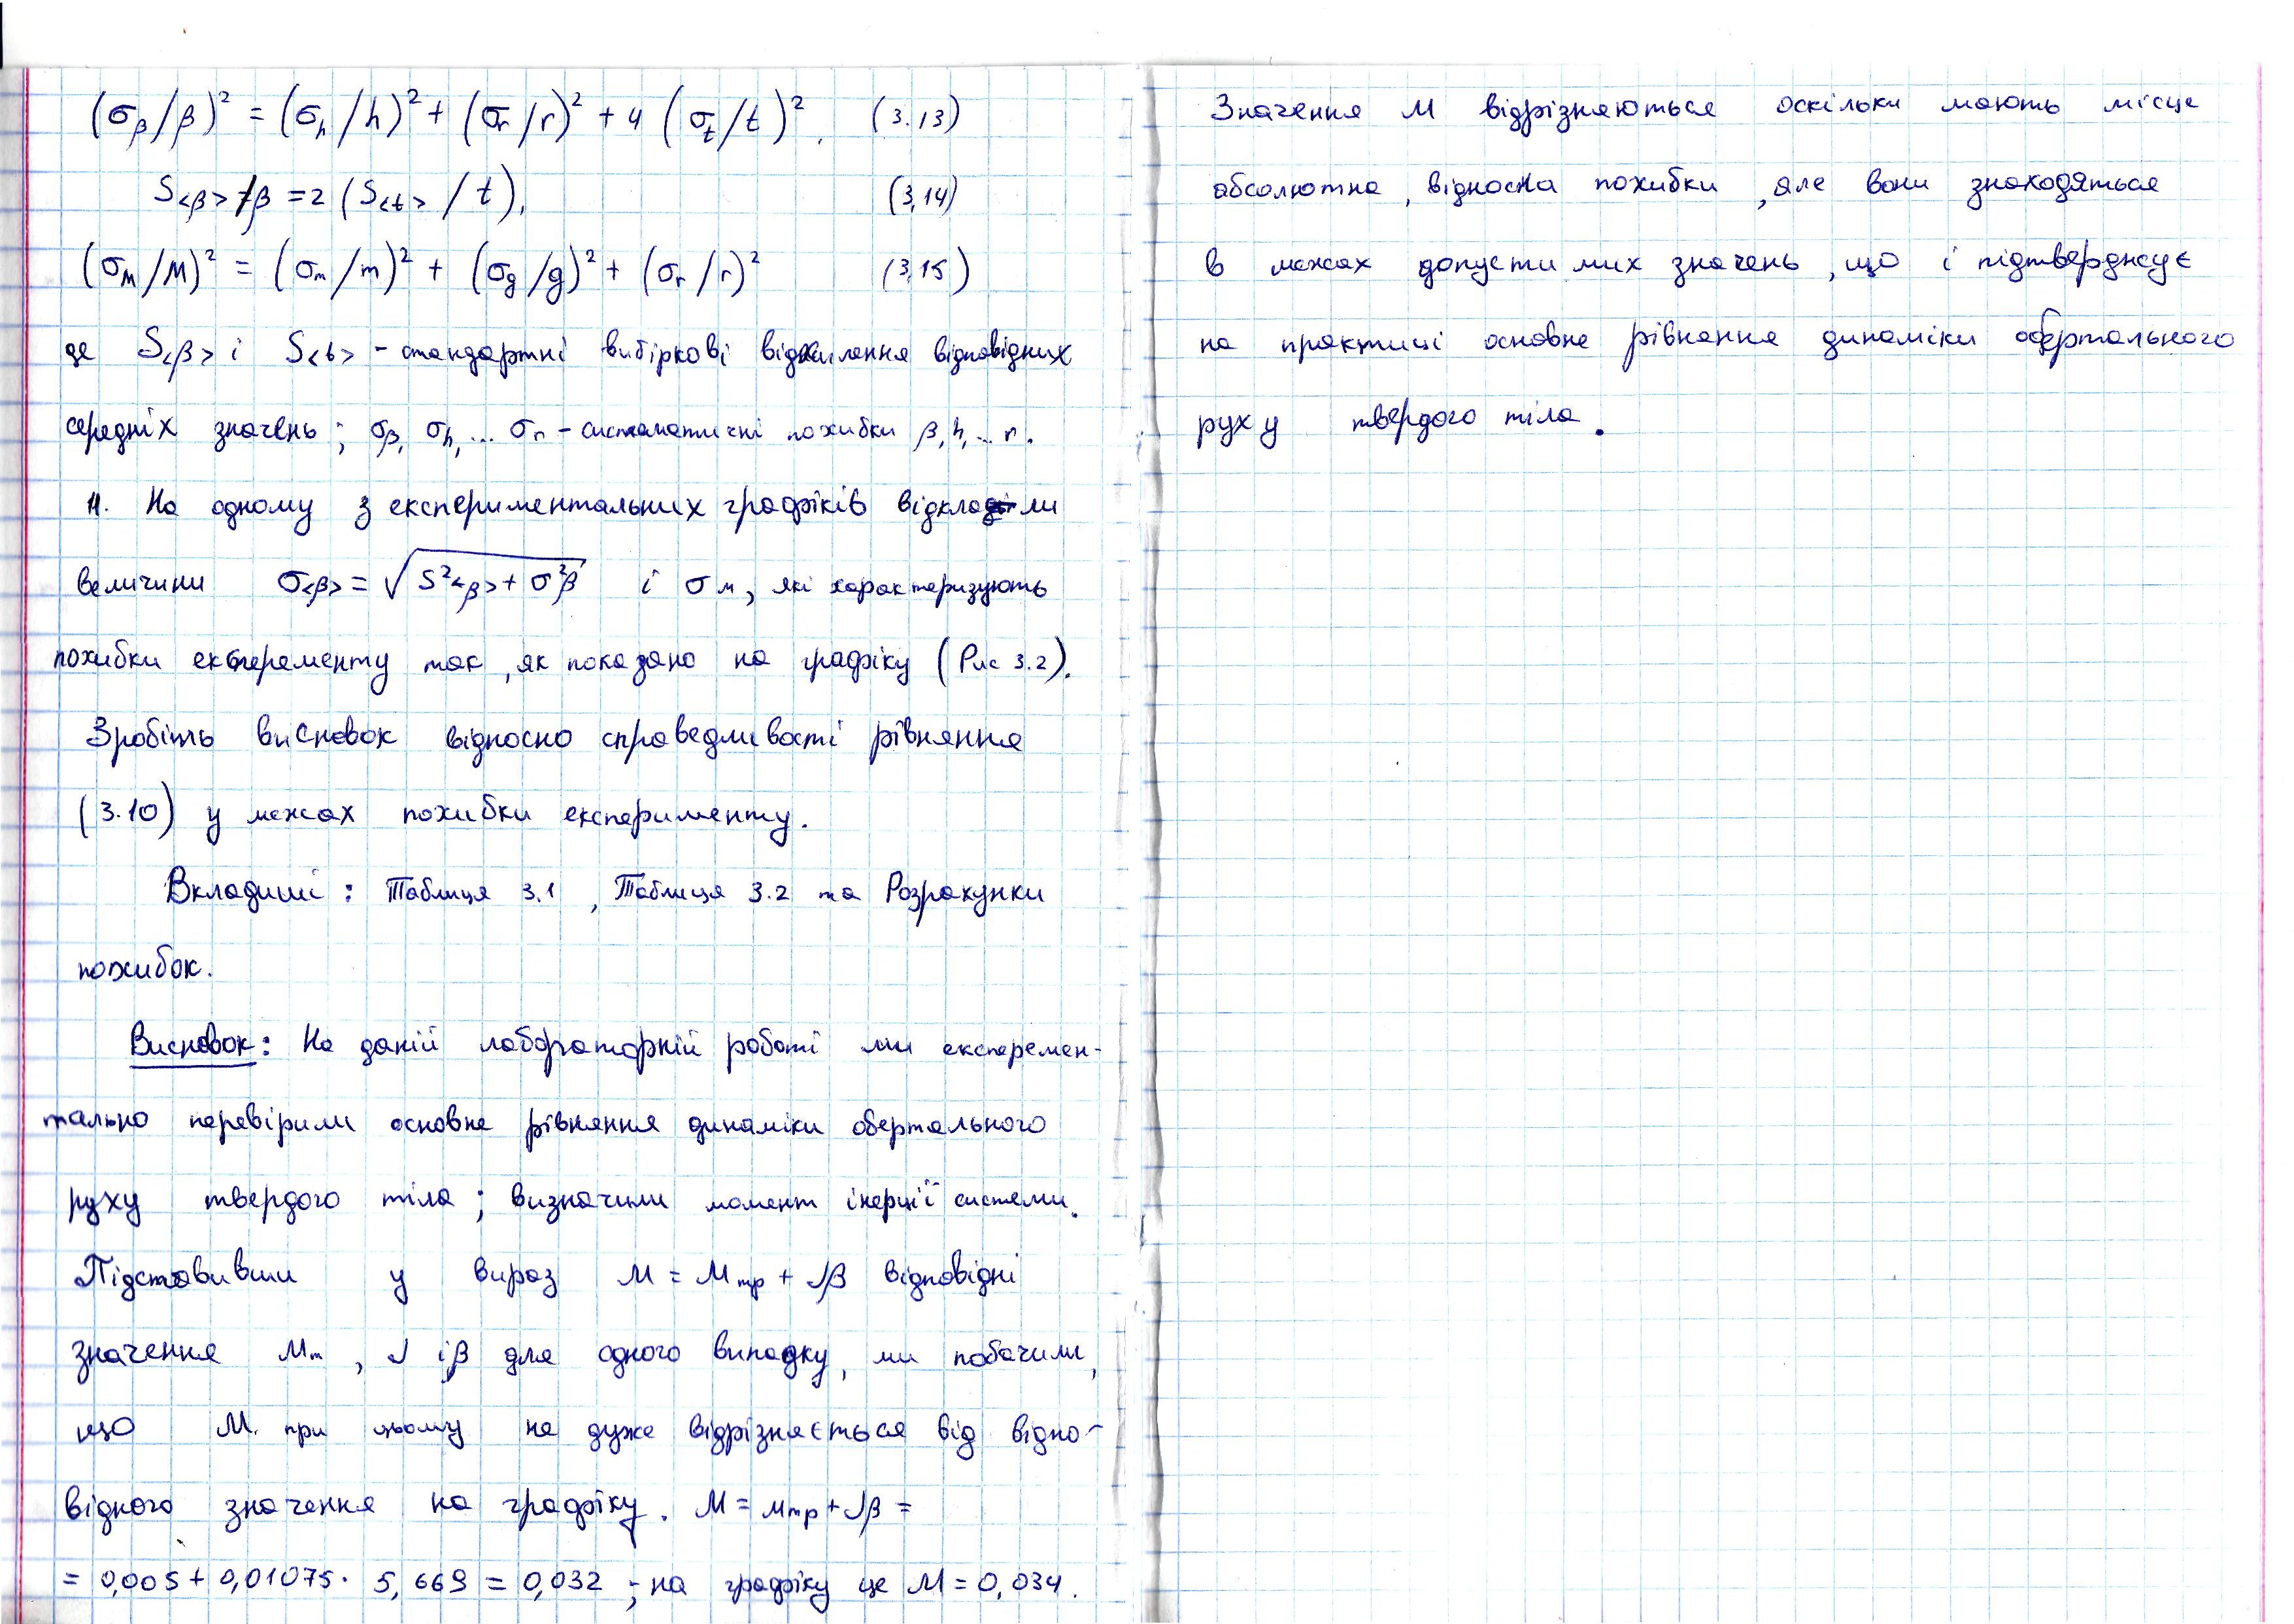 (σβ/β)² = (σh/h)² + (σr/r)² + 4 (σt/t)². (3.13)
S<β>/β = 2 (S<t> / t), (3,14)
(σM/M)² = (σm/m)² + (σg/g)² + (σr/r)² (3,15)
де S<β> і S<t> - стандартні вибіркові відхилення відповідних
середніх значень; σβ, σh, ... σr - систематичні похибки β, h, ... r.
4. На одному з експериментальних графіків відклали
величини σ<β> = √S²<β> + σ²β і σм, які характеризують
похибки експеременту так, як показано на графіку (Рис 3.2).
Зробіть висновок відносно справедливості рівняння
(3.10) у межах похибки експерименту.
Вкладиші: Таблиця 3.1, Таблиця 3.2 та Розрахунки
похибок.
Висновок: На даній лабораторній роботі ми експеремен-
тально перевірили основне рівняння динаміки обертального
руху твердого тіла; визначили момент інерції системи.
Підставивши у вираз M = Mтр + Jβ відповідні
значення Mт, J і β для одного випадку, ми побачили,
що M при цьому не дуже відрізняється від відпо-
відного значення на графіку. M = Mтр + Jβ =
= 0,005 + 0,01075 · 5,669 = 0,032 ; на графіку це M = 0,034.
Значення M відрізняються оскільки мають місце
абсолютна, відносна похибки, але вони знаходяться
в межах допустимих значень, що і підтверджує
на практиці основне рівняння динаміки обертального
руху твердого тіла.